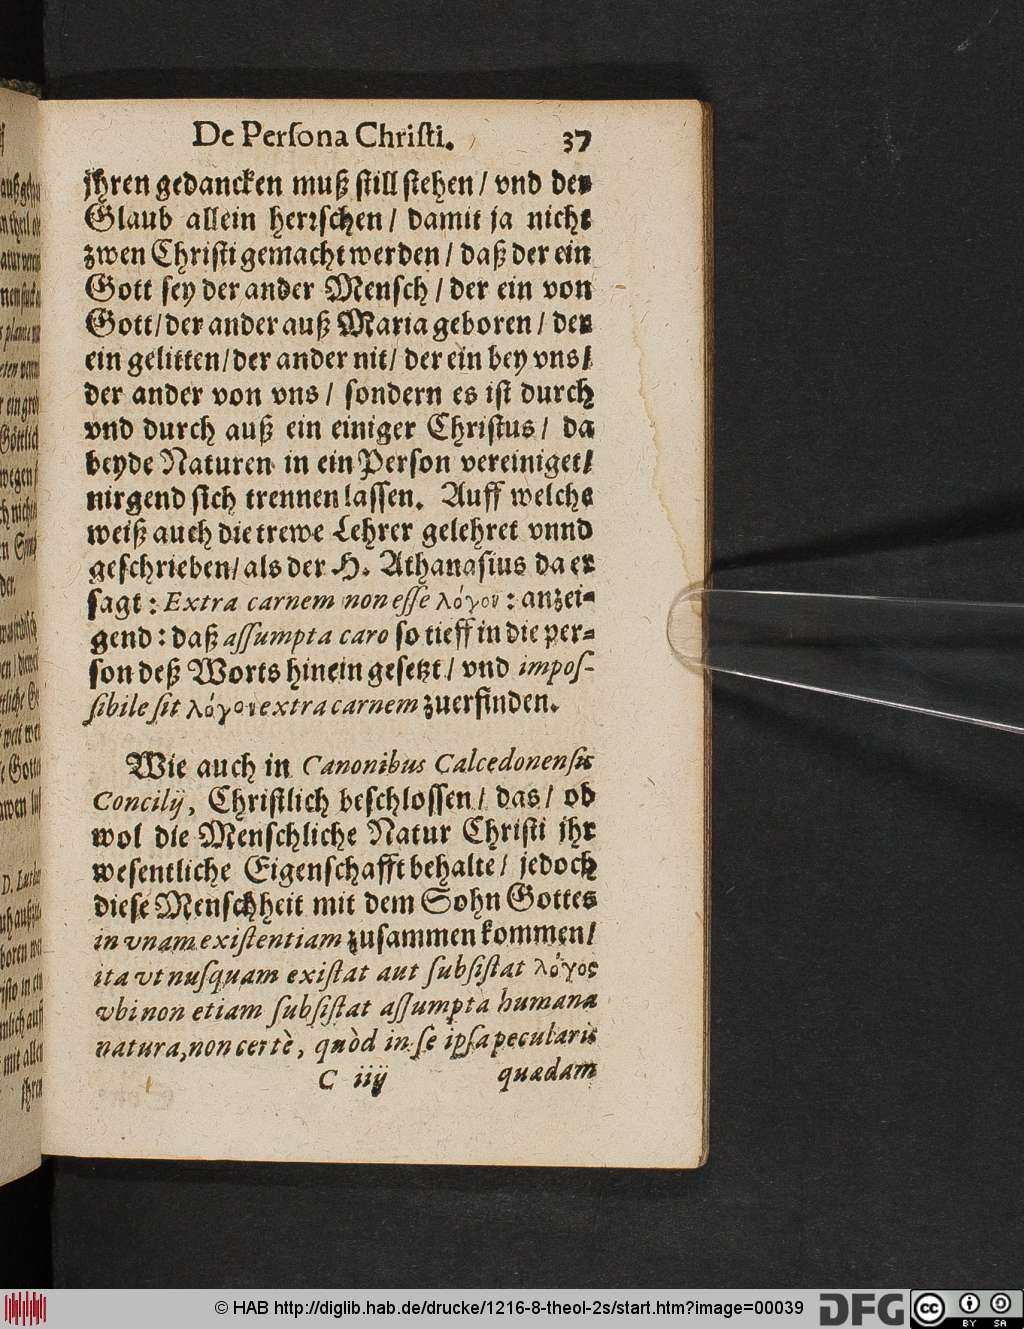 De Perſona Chriſti. 37
jhren gedancken muß ſtill ſtehen / vnd der
Glaub allein herꝛſchen / damit ja nicht
zwen Chriſti gemacht werden / daß der ein
Gott ſey der ander Menſch / der ein von
Gott / der ander auß Maria geboren / der
ein gelitten / der ander nit / der ein bey vns /
der ander von vns / ſondern es iſt durch
vnd durch auß ein einiger Chriſtus / da
beyde Naturen in ein Perſon vereiniget /
nirgend ſich trennen laſſen. Auff welche
weiß auch die trewe Lehrer gelehret vnnd
geſchrieben / als der H. Athanaſius da er
ſagt : Extra carnem non eſſe λόγον : anzei-
gend : daß aſſumpta caro ſo tieff in die per-
ſon deß Worts hinein geſetzt / vnd impoſ-
ſibile ſit λόγον extra carnem zuerfinden.
Wie auch in Canonibus Calcedonenſis
Concilij, Chriſtlich beſchloſſen / das / ob
wol die Menſchliche Natur Chriſti jhr
weſentliche Eigenſchafft behalte / jedoch
dieſe Menſchheit mit dem Sohn Gottes
in vnam exiſtentiam zuſammen kommen /
ita vt nuſquam exiſtat aut ſubſiſtat λόγος
vbi non etiam ſubſiſtat aſſumpta humana
natura, non certè, quòd in ſe ipſa pecularis
C iiij quædam
© HAB http://diglib.hab.de/drucke/1216-8-theol-2s/start.htm?image=00039
DFG
cc BY SA